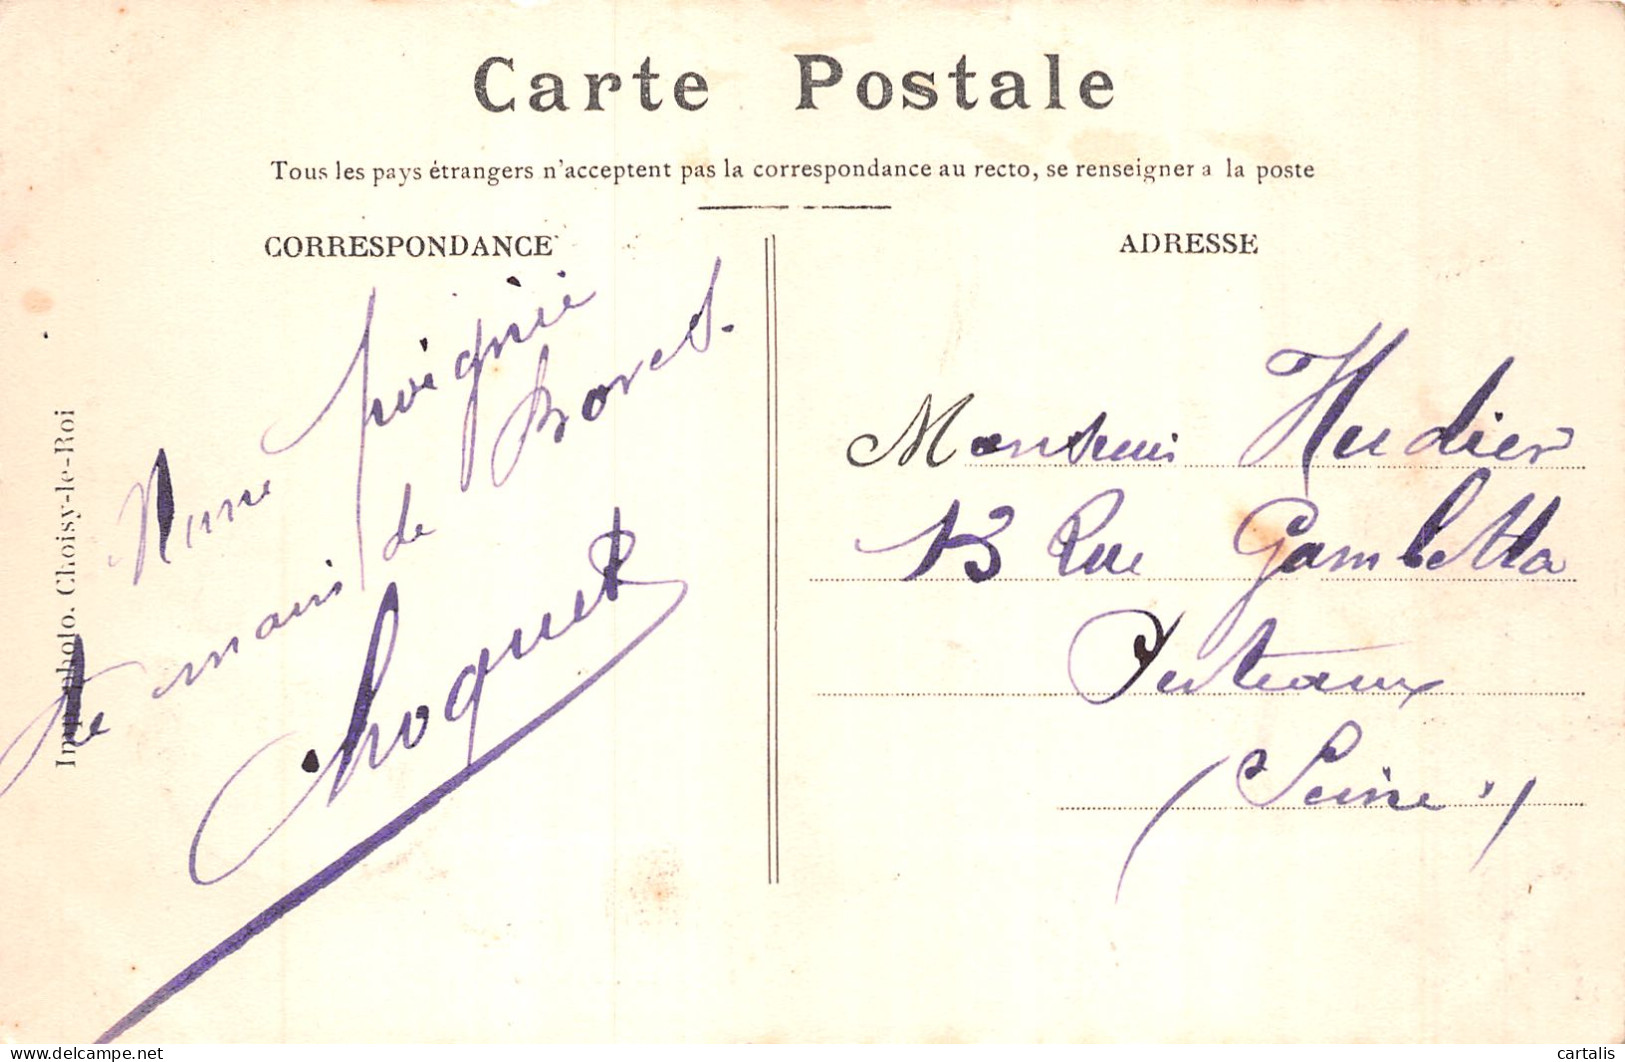 Carte Postale
Tous les pays étrangers n'acceptent pas la correspondance au recto, se renseigner a la poste
CORRESPONDANCE
ADRESSE
Imp. photo. Choisy-le-Roi
poignée
de main de
Choquet
Monsieur Hudier
13 Rue Gambetta
Puteaux
(Seine)
delcampe.net
cartalis